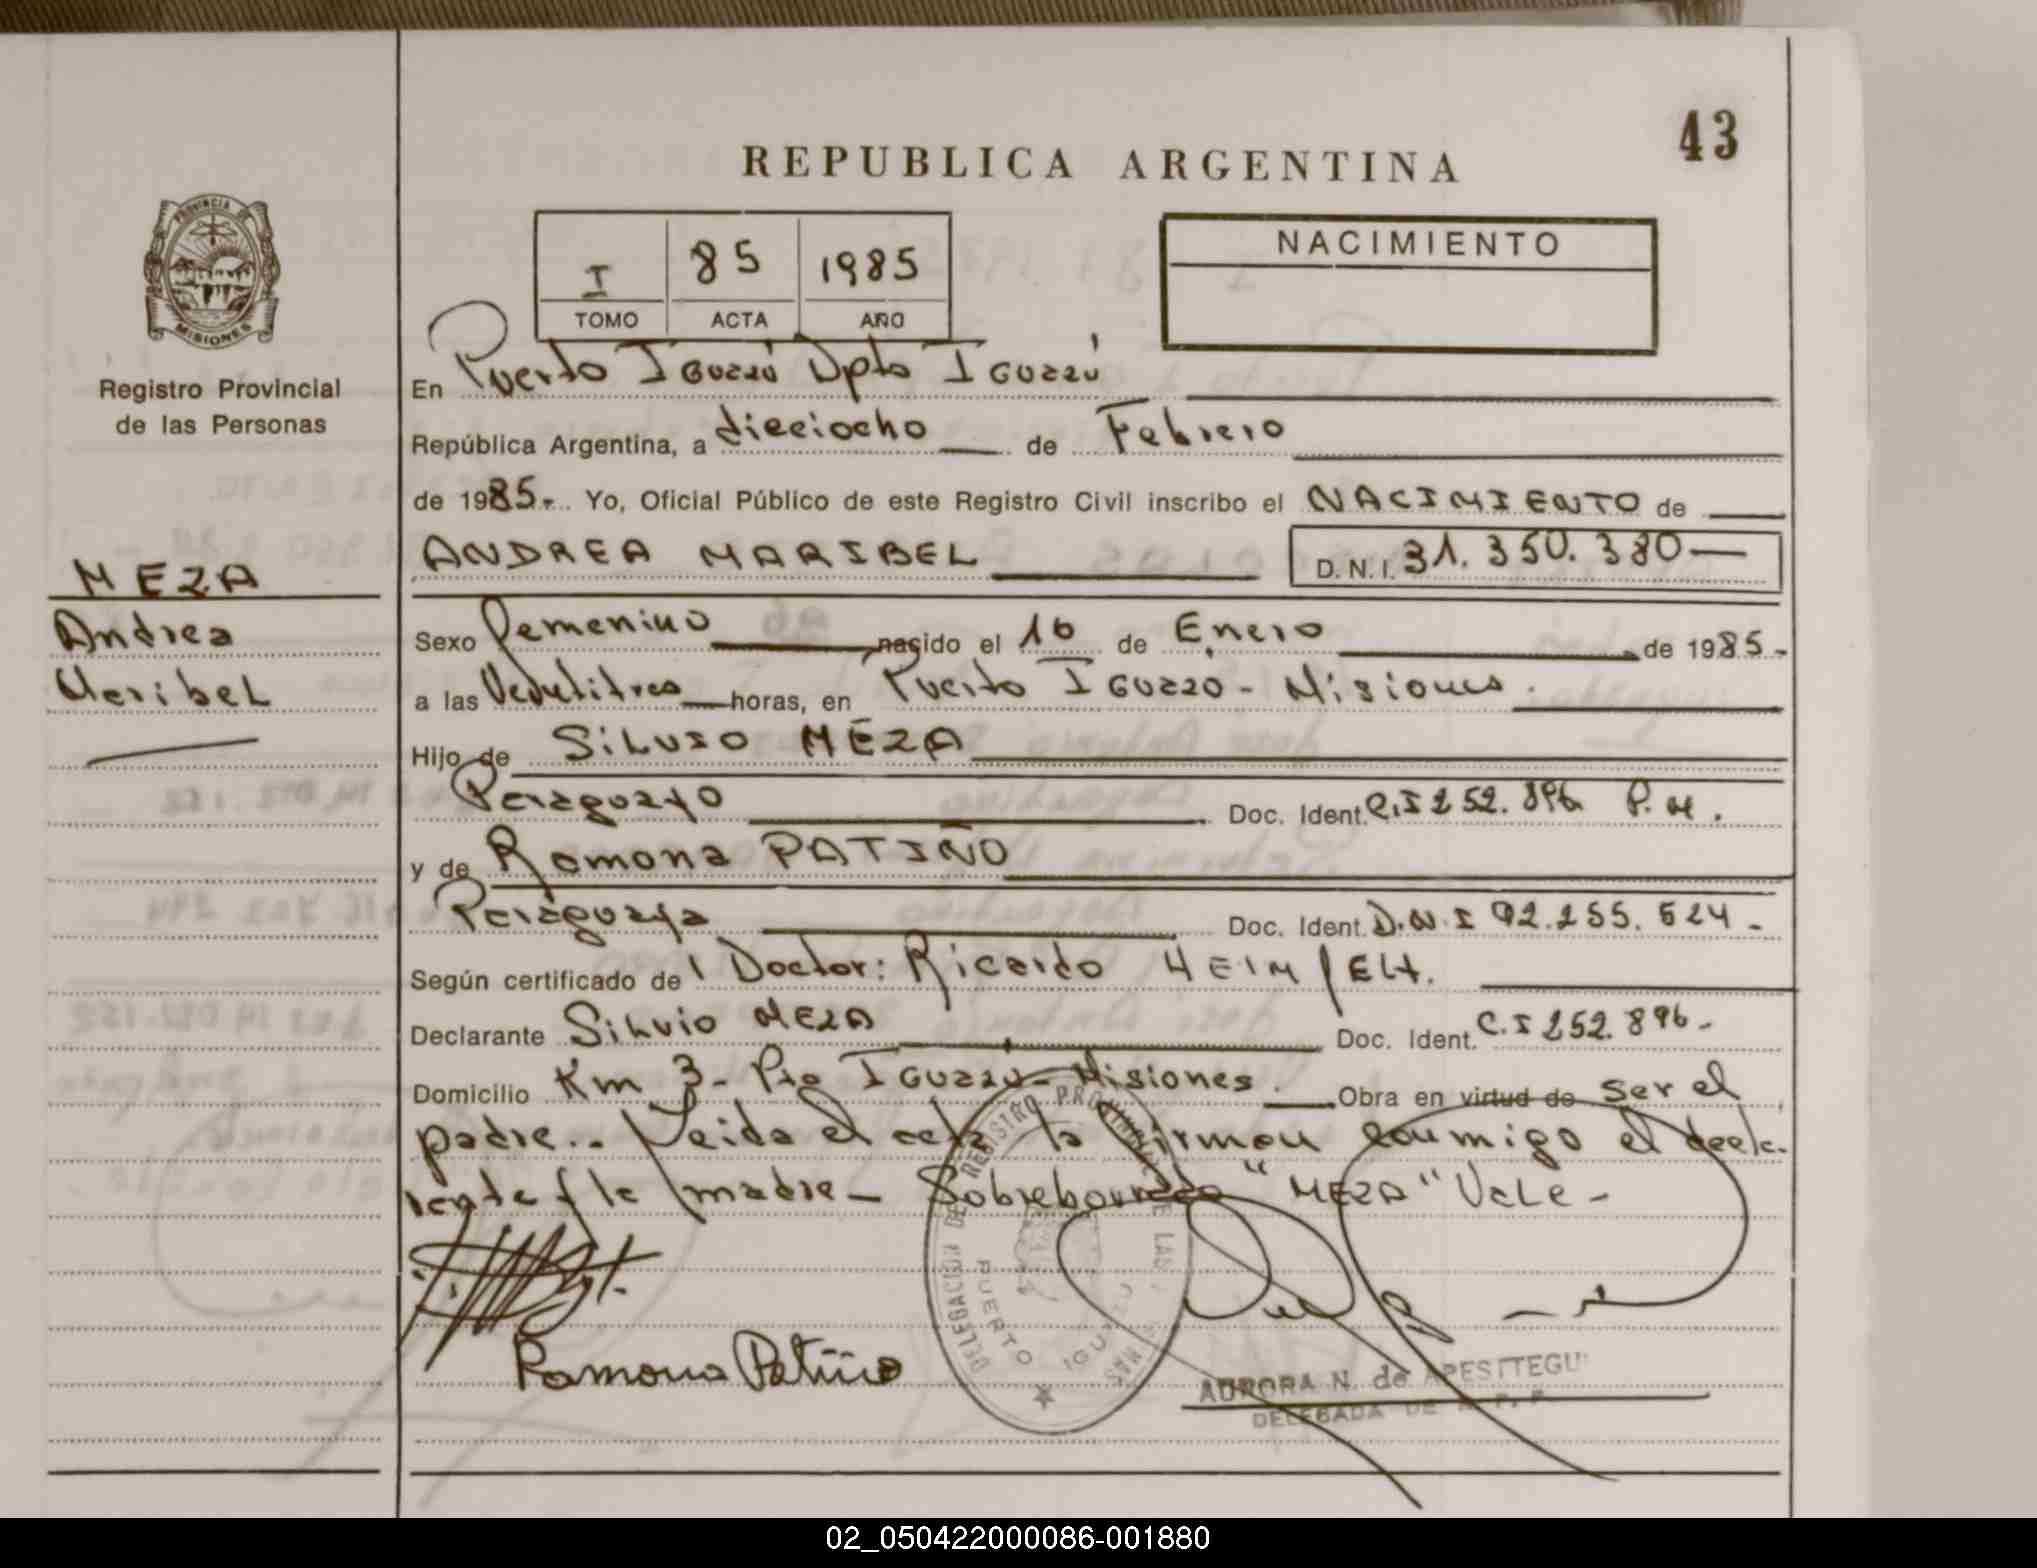 43
REPUBLICA ARGENTINA
PROVINCIA DE
MISIONES
Registro Provincial
de las Personas
I 85 1985
TOMO ACTA AÑO
NACIMIENTO
En Puerto Iguazú Dpto Iguazú
República Argentina, a dieciocho de Febrero
de 1985. Yo, Oficial Público de este Registro Civil inscribo el NACIMIENTO de
ANDREA MARIBEL D. N. I. 31.350.380
MEZA
Andrea
Maribel
Sexo Femenino nacido el 16 de Enero de 1985
a las horas, en Puerto Iguazú - Misiones.
Hijo de Silvio MEZA
Paraguayo Doc. Ident. C.I 252.896 P.M.
y de Ramona PATIÑO
Paraguaya Doc. Ident. D.N.I 92.255.524 -
Según certificado de l Doctor: Ricardo
Declarante Silvio MEZA Doc. Ident. C.I 252.896 -
Domicilio Km 3 - Pto Iguazú - Misiones. Obra en virtud de ser el
padre.. Leida el acta la firman conmigo el decla-
rante y la madre - Sobreborrado "MEZA" Vale -
Ramona Patiño
DELEGACION DE REGISTRO PROVINCIAL DE LAS
PUERTO IGUAZU
AURORA N. de APESTTEGUI
DELEGADA DE
02_050422000086-001880